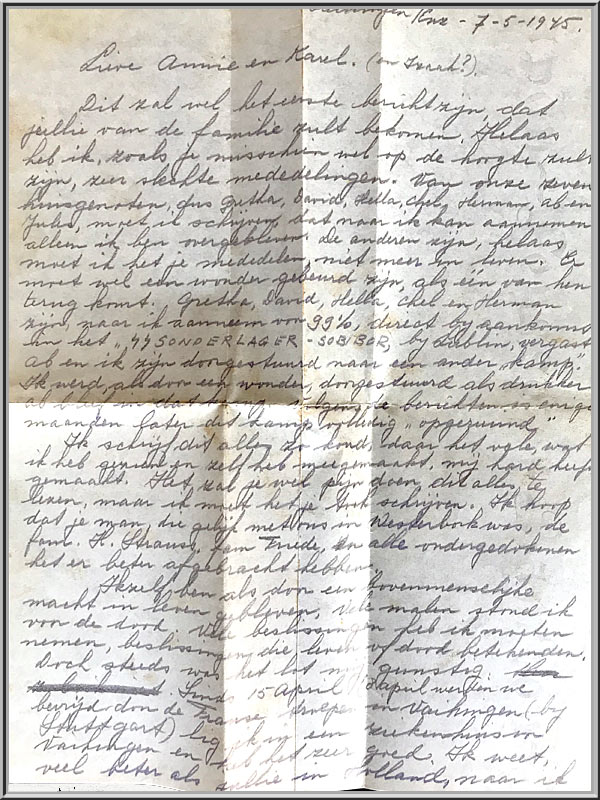 Vaihingen/Enz - 7-5-1945.
Lieve Annie en Karel. (en Izaak?).
Dit zal wel het eerste bericht zijn, dat
jullie van de familie zult bekomen. Helaas
heb ik, zoals je misschien wel op de hoogte zult
zijn, zeer slechte mededelingen. Van onze zeven
huisgenoten, dus Gretha, David, Hella, Chel, Herman, ab en
Jules, moet ik schrijven, dat naar ik kan aannemen
alleen ik ben overgebleven. De anderen zijn, helaas
moet ik het je mededelen, niet meer in leven. Er
moet wel een wonder gebeurd zijn, als één van hen
terug komt. Gretha, David, Hella, Chel en Herman
zijn, naar ik aanneem voor 99%, direct bij aankomst
in het „SS SONDERLAGER - SOBIBOR, bij Lublin, vergast
ab en ik zijn doorgestuurd naar een ander „kamp".
Ik werd, als door een wonder, doorgestuurd als drukker
ab bleef in dat kamp. Volgens de berichten is enige
maanden later dit kamp volledig „opgeruimd"
Ik schrijf dit alles zo koud, daar het vele, wat
ik heb gezien en zelf heb meegemaakt, mij hard heeft
gemaakt. Het zal je wel pijn doen, dit alles te
lezen, maar ik moet het je toch schrijven. Ik hoop
dat je man, die gelijk met ons in Westerbork was, de
fam. H. Strauss, fam Friede, en alle ondergedokenen
het er beter afgebracht hebben.
Ikzelf ben als door een bovenmenschelijke
macht in leven gebleven. Vele malen stond ik
voor de dood. Vele beslissingen heb ik moeten
nemen, beslissingen die leven of dood betekenden.
Doch steeds was het lot mij gunstig.
Sinds 15 April april werden we
bevrijd door de Franse troepen in Vaihingen (by
Stuttgart) lig ik in een ziekenhuis in
Vaihingen en heb het zeer goed. Ik weet,
veel beter als jullie in Holland, maar ik